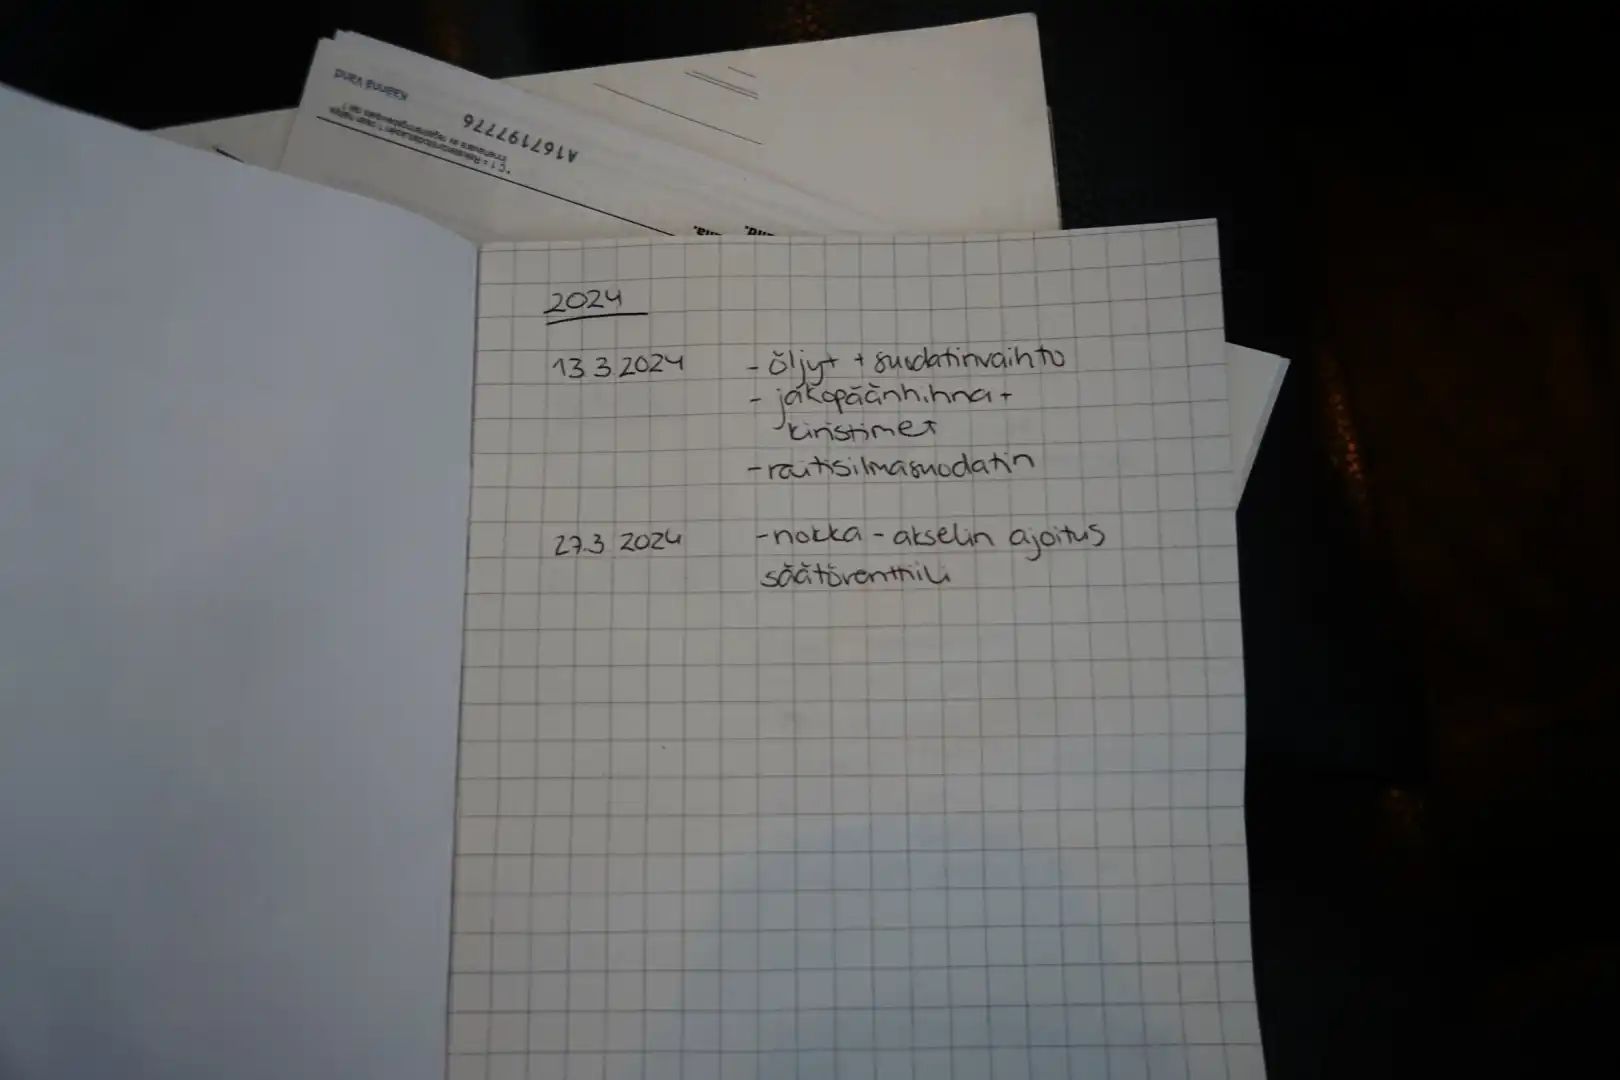 Käännä Vänd
A167197776
2024
13.3.2024 - öljyt + suodatinvaihto
- jakopäänhihna +
kiristimet
- raitisilmasuodatin
27.3 2024 - nokka - akselin ajoitus
säätöventtiili